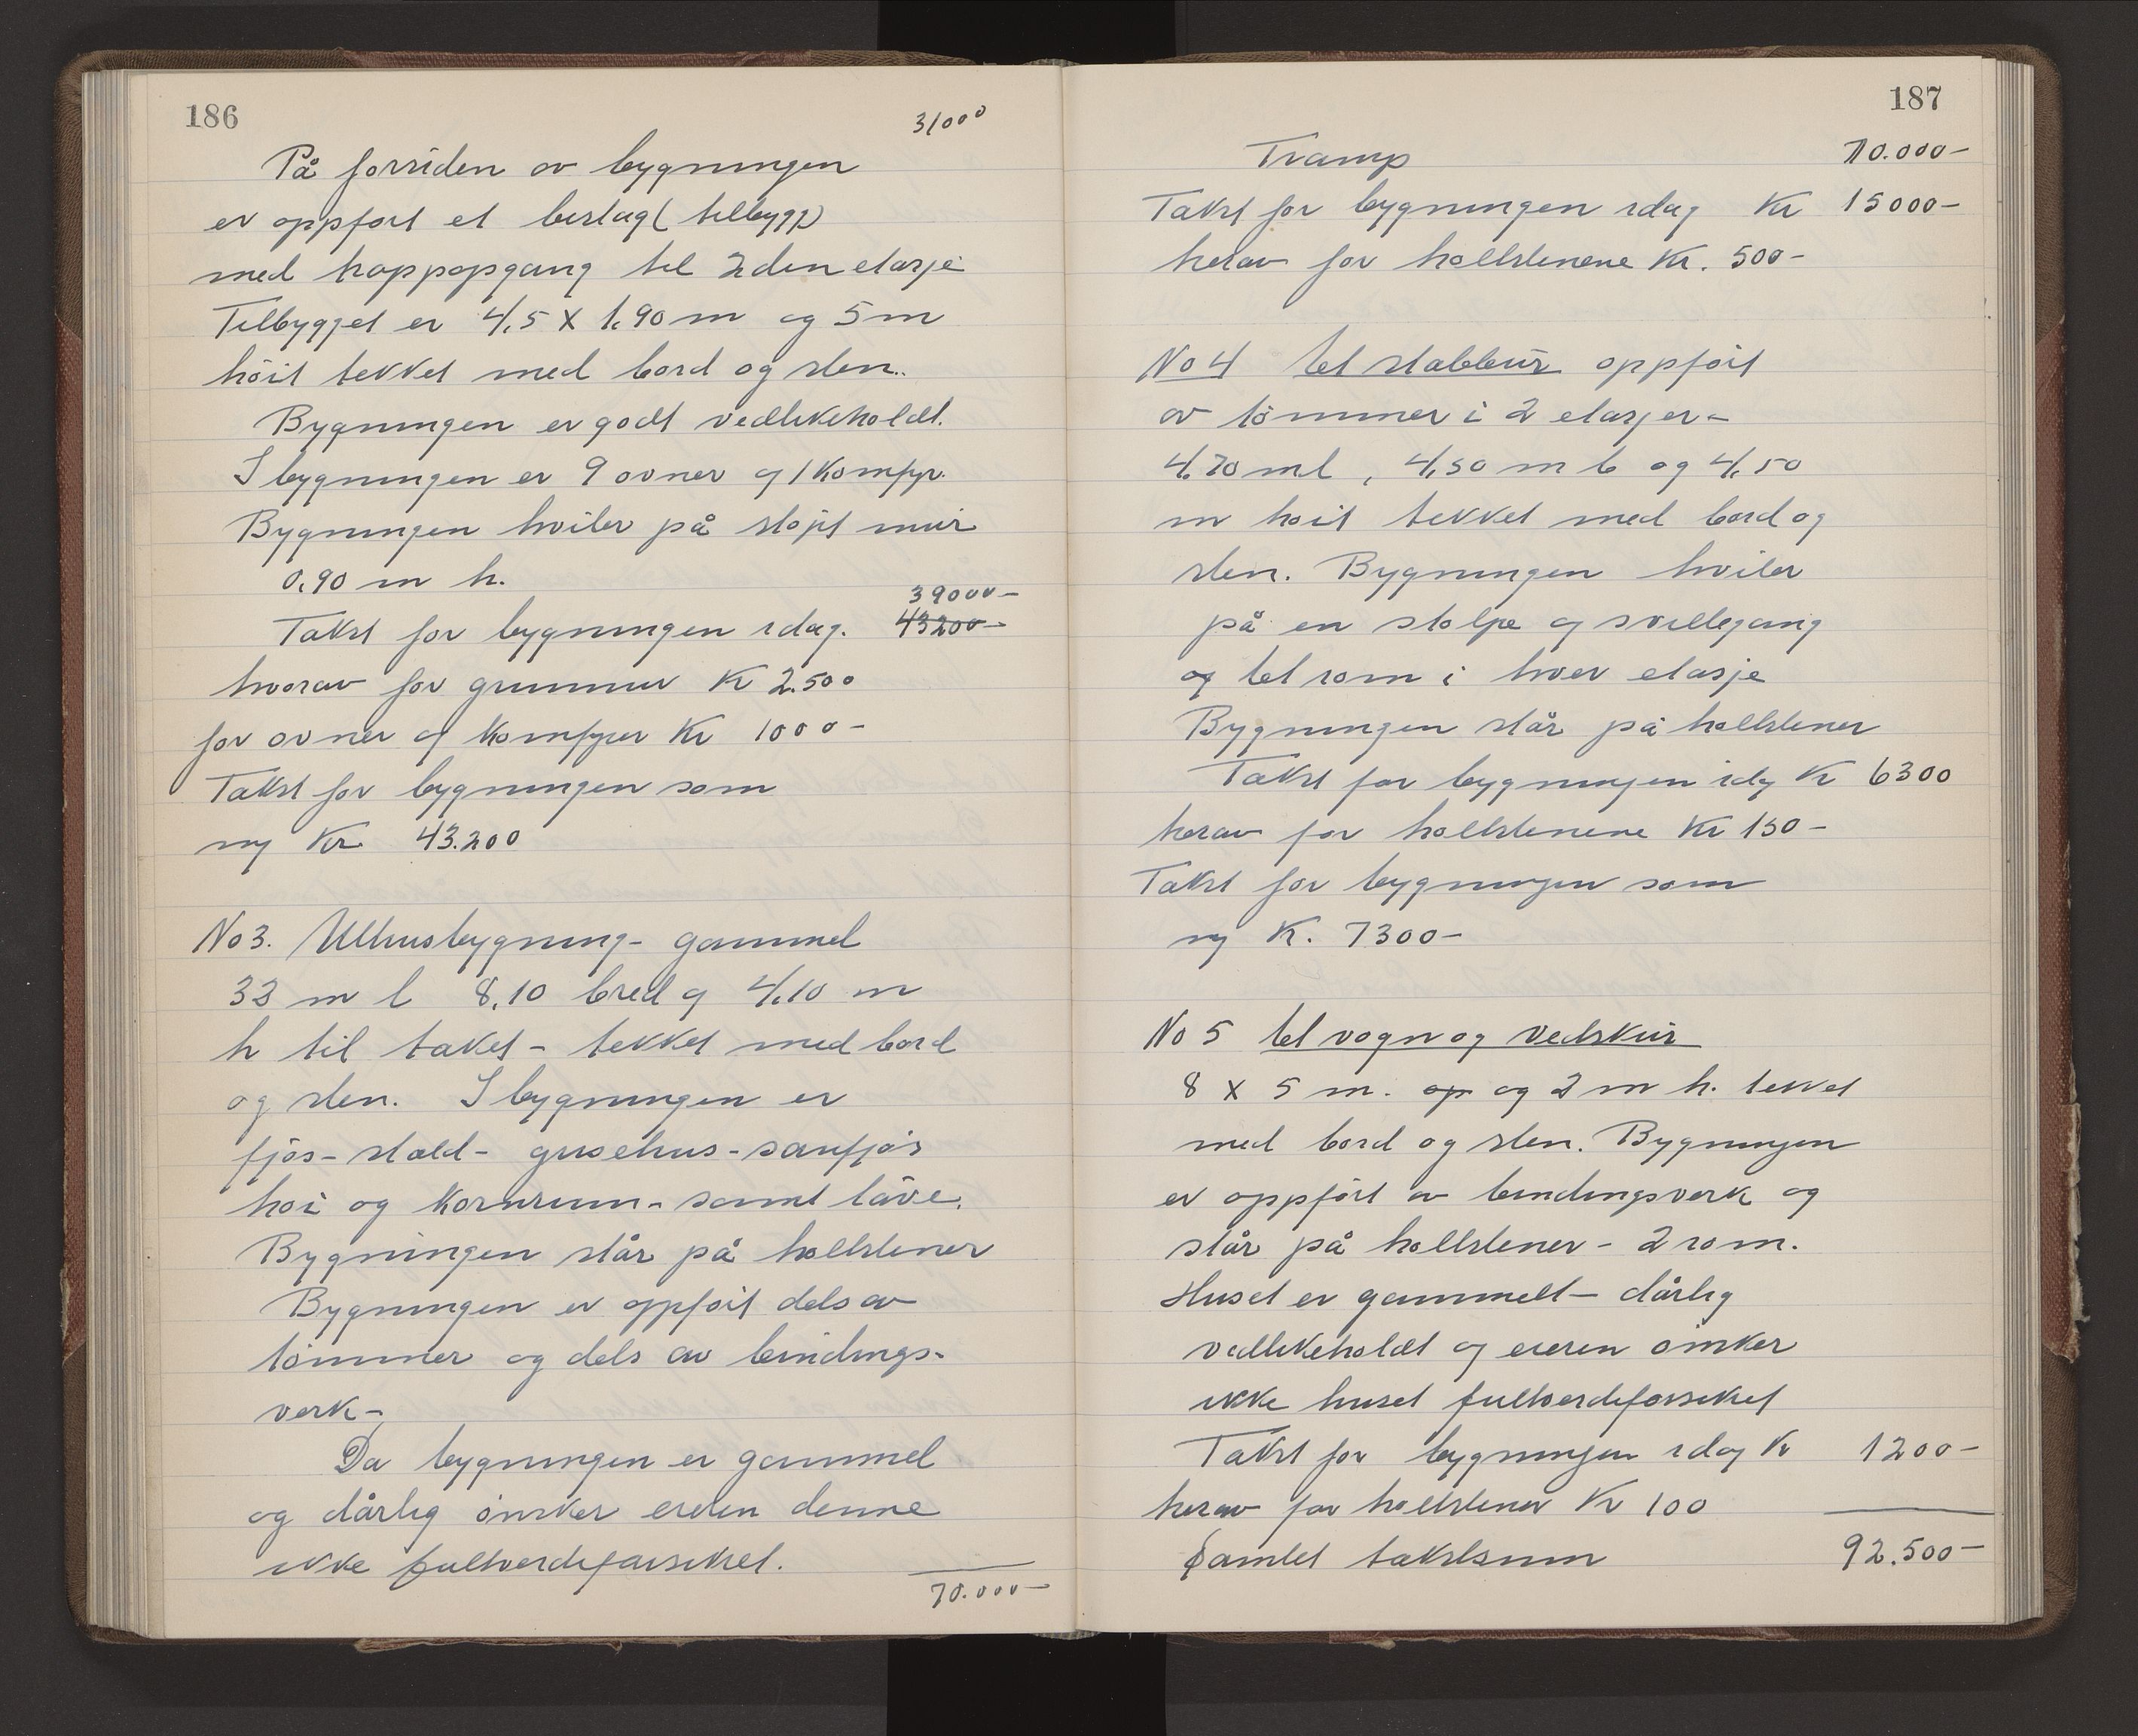 186
31000
På forsiden av bygningen
er oppført et bislag (tilbygg)
med trappopgang til 2den etasje
Tilbygget er 4,5 X 1,90 m og 5 m
höit tekket med bord og sten.
Bygningen er godt vedlikeholdt.
I bygningen er 9 ovner og 1 komfyr.
Bygningen hviler på støpt mur
0,90 m h.
39000-
Takst for bygningen idag. 43200-
hvorav for grunmur Kr 2.500
for ovner og komfyrer Kr 1000-
Takst for bygningen som
ny Kr 43.200
No 3. Uthusbygning - gammel
33 m l 8,10 bred og 4,10 m
h til taket - tekket med bord
og sten. I bygningen er
fjös - stald - grisehus - saufjös
höi og kornrum - samt låve.
Bygningen står på hellstener
Bygningen er oppfört dels av
tömmer og dels av bindings-
verk -
Da bygningen er gammel
og dårlig önsker eieren denne
ikke fullverdiforsikret.
70.000-
187
Transp 70.000-
Takst for bygningen idag Kr 15000-
herav for hellstenene Kr. 500-
No 4 Et stabbur oppfört
av tömmer i 2 etasjer -
4,70 m l, 4,50 m b og 4,50
m höit tekket med bord og
sten. Bygningen hviler
på en stolpe og svillegang
og et rom i hver etasje
Bygningen står på hellstener
Takst for bygningen idg Kr 6300
herav for hellstenene Kr 150-
Takst for bygningen som
ny K. 7300-
No 5 Et vogn og vedskur
8 x 5 m. op og 2 m h. tekket
med bord og sten. Bygningen
er oppfört av bindingsverk og
står på hellstener - 2 rom.
Huset er gammelt - dårlig
vedlikeholdt og eieren önsker
ikke huset fullverdiforsikret
Takst for bygningen idag Kr 1200-
herav for hellstener Kr 100
Samlet takstsum 92.500-